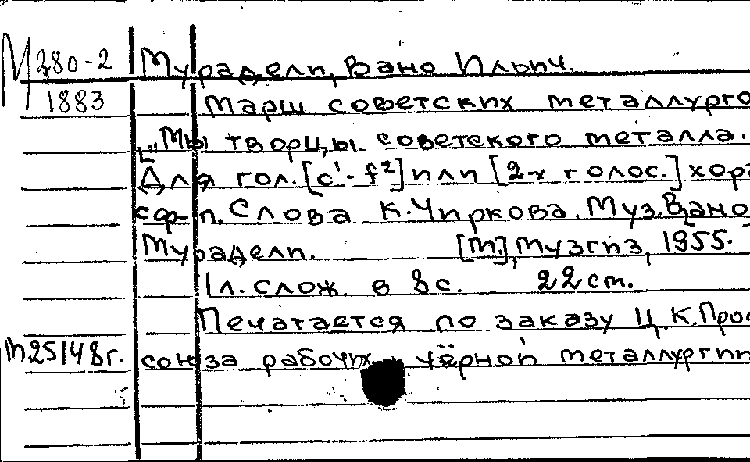 М 280-2
1883
Мурадели, Вано Ильич.
Марш советских металлурго
"Мы творцы советского металла.
Для гол. [c¹-f²] или [2-х голос.] хора
с ф-п. Слова К. Чиркова. Муз. Вано
Мурадели. [М.], Музгиз, 1955.
1 л. слож. в 8 с. 22 cm.
Печатается по заказу Ц.К. Проф
m25148г. союза рабочих чёрной металлургии